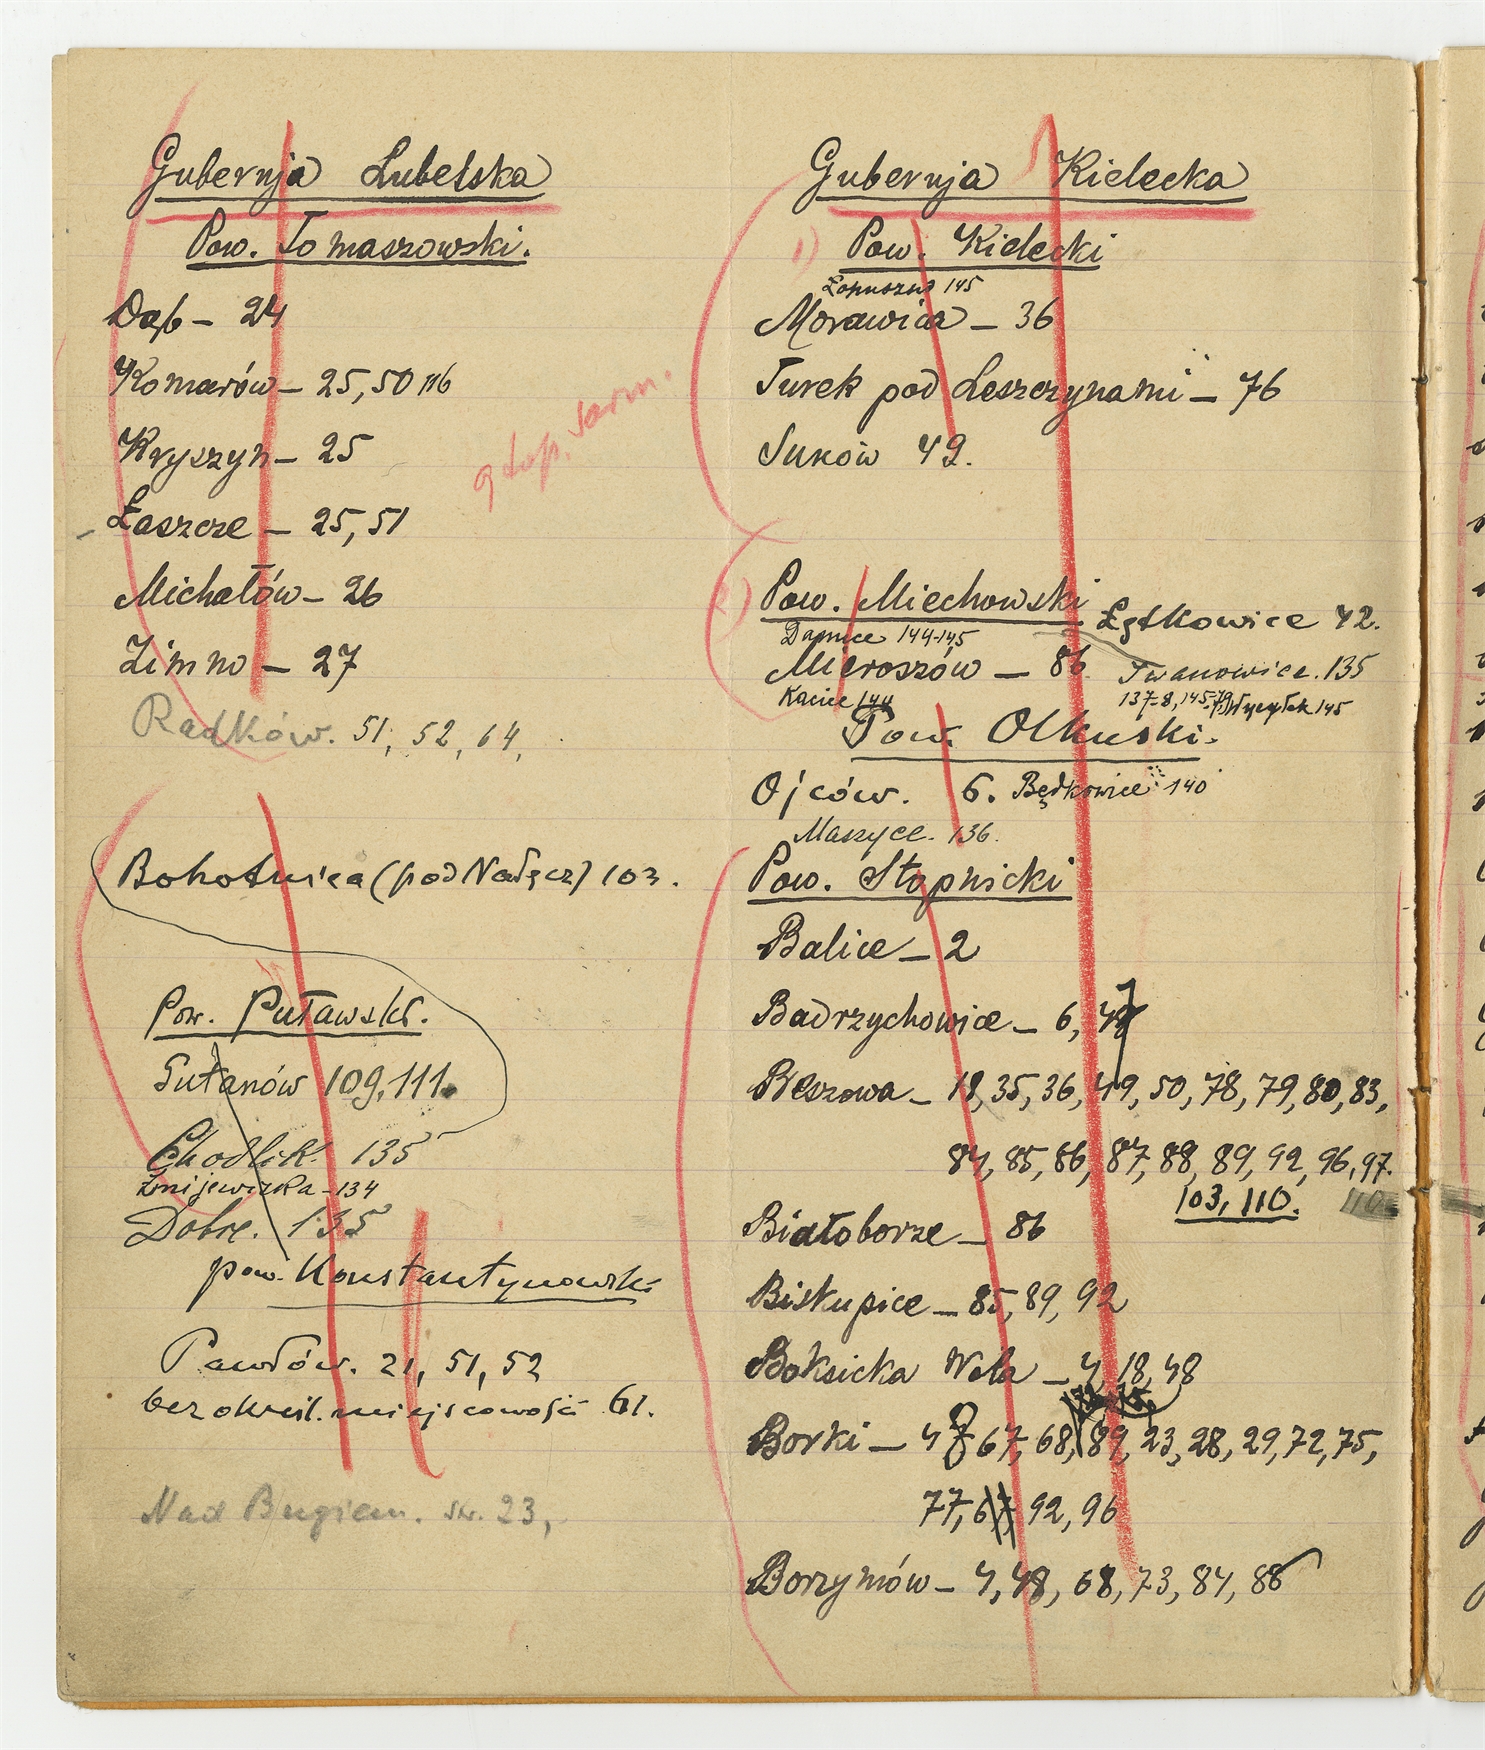 Gubernja Lubelska
Pow. Tomaszowski.
Dąb – 24
Komarów – 25, 50 116
Kryszyn – 25
Łaszcze – 25, 51
Michałów – 26
Zimno – 27
Radków. 51, 52, 64,
Bohotnica (pod Nałęcz) 103.
Pow. Puławski.
Sułanów 109, 111.
Chodlik. 135
Żmijewiska – 134
Dobre. 135
pow. Konstantynowski
Pawłów. 21, 51, 52
bez określ. miejscowości 61.
Nad Bugiem. str. 23,
Gubernja Kielecka
1) Pow. Kielecki
Łopuszno 145
Morawica – 36
Turek pod Leszczynami – 76
Suków 49.
2) Pow. Miechowski
Łętkowice 42.
Damice 144-145
Mieroszów – 86
Iwanowice. 135
Kacice 144
137-8, 145-
Pow. Olkuski.
Ojców. 6. Będkowice 140
Maszyce. 136.
Pow. Stopnicki
Balice – 2
Badrzychowice – 6,
Beszowa – 18, 35, 36, 49, 50, 78, 79, 80, 83,
84, 85, 86, 87, 88, 89, 92, 96, 97.
103, 110. 110
Białoborze – 86
Biskupice – 85, 89, 92
Boksicka Wola – 4, 18, 48
Borki – 4 67, 68, 89, 23, 28, 29, 72, 75,
77, 92, 96
Borzymów – 4, 48, 68, 73, 84, 88